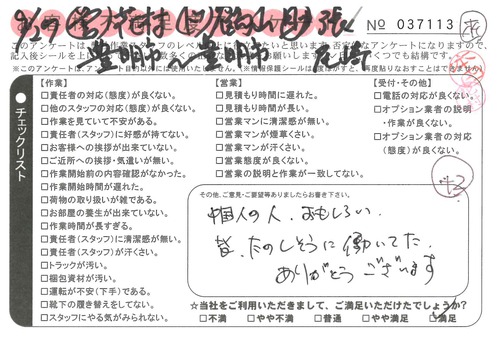 № 037113
このアンケートは、
記入後シールを上
【作業】
□責任者の対応(態度)が良くない。
□他のスタッフの対応(態度)が良くない。
□作業を見ていて不安がある。
□責任者(スタッフ)に好感が持てない。
□お客様への挨拶が出来ていない。
□ご近所への挨拶・気遣いが無い。
□作業開始前の内容確認がなかった。
□作業開始時間が遅れた。
□荷物の取り扱いが雑である。
□お部屋の養生が出来ていない。
□作業時間が長すぎる。
□責任者(スタッフ)に清潔感が無い。
□責任者(スタッフ)が汗くさい。
□トラックが汚い。
□梱包資材が汚い。
□運転が不安(下手)である。
□靴下の履き替えをしてない。
□スタッフにやる気がみられない。
【営業】
□見積もり時間に遅れた。
□見積もり時間が長い。
□営業マンに清潔感が無い。
□営業マンが煙草くさい。
□営業マンが汗くさい。
□営業態度が良くない。
□営業の説明と作業が一致してない。
【受付・その他】
□電話の対応が良くない。
□オプション業者の説明・作業が良くない。
□オプション業者の対応(態度)が良くない。
チェックリスト
その他、ご意見・ご要望等ありましたらお書き下さい。
中国人の人、おもしろい、
皆、たのしそうに働いてた、
ありがとうございます
☆当社をご利用いただきまして、ご満足いただけたでしょうか?
□不満 □やや不満 □普通 □やや満足 □満足